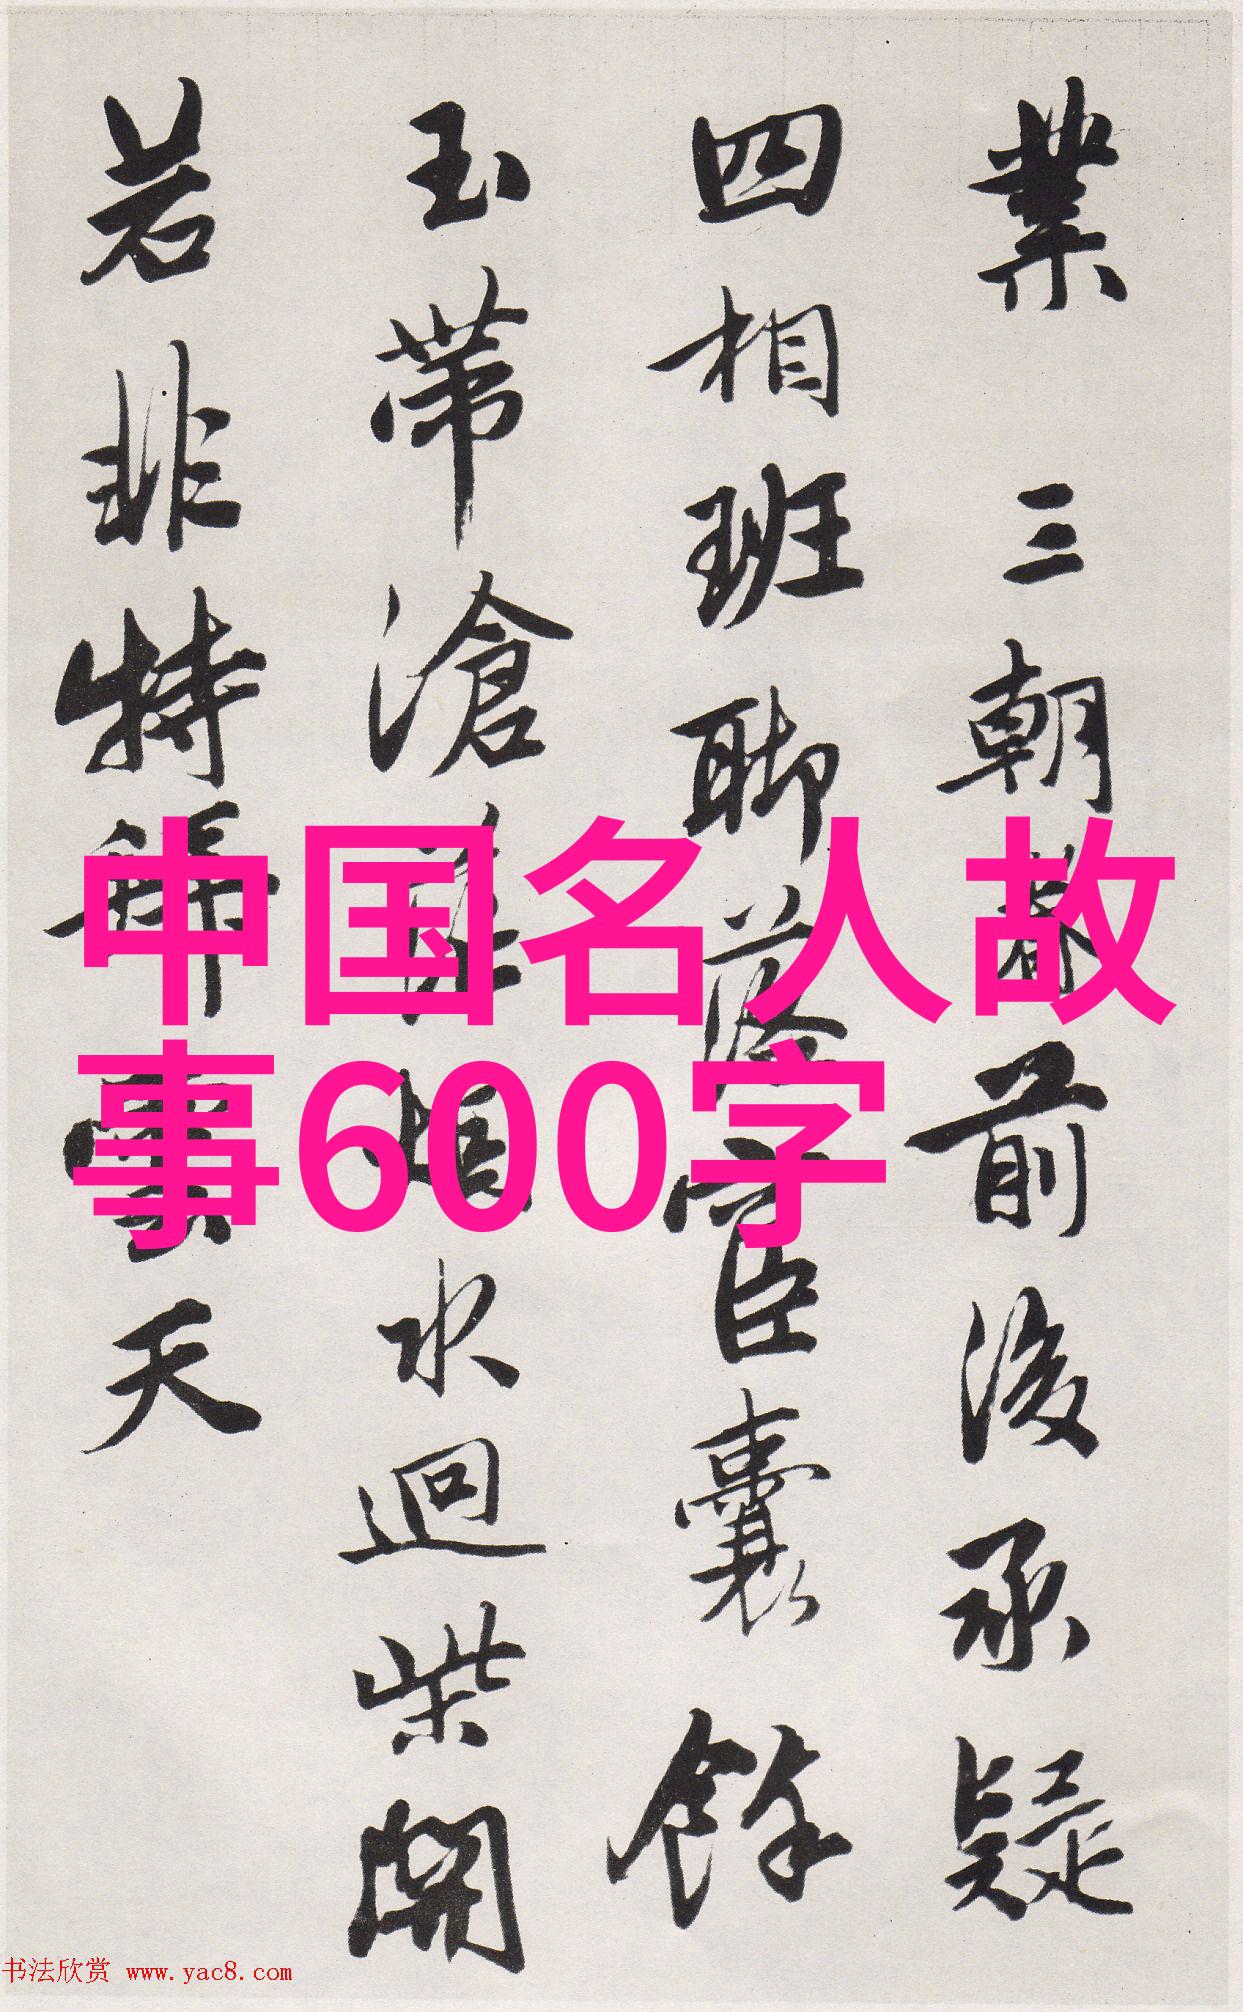 業 三朝前後承疑
四相班聊臣囊餘
玉帶滄水迴柴開
若非特雲天
中国名人故
事600字
书法欣赏 www.yac8.com